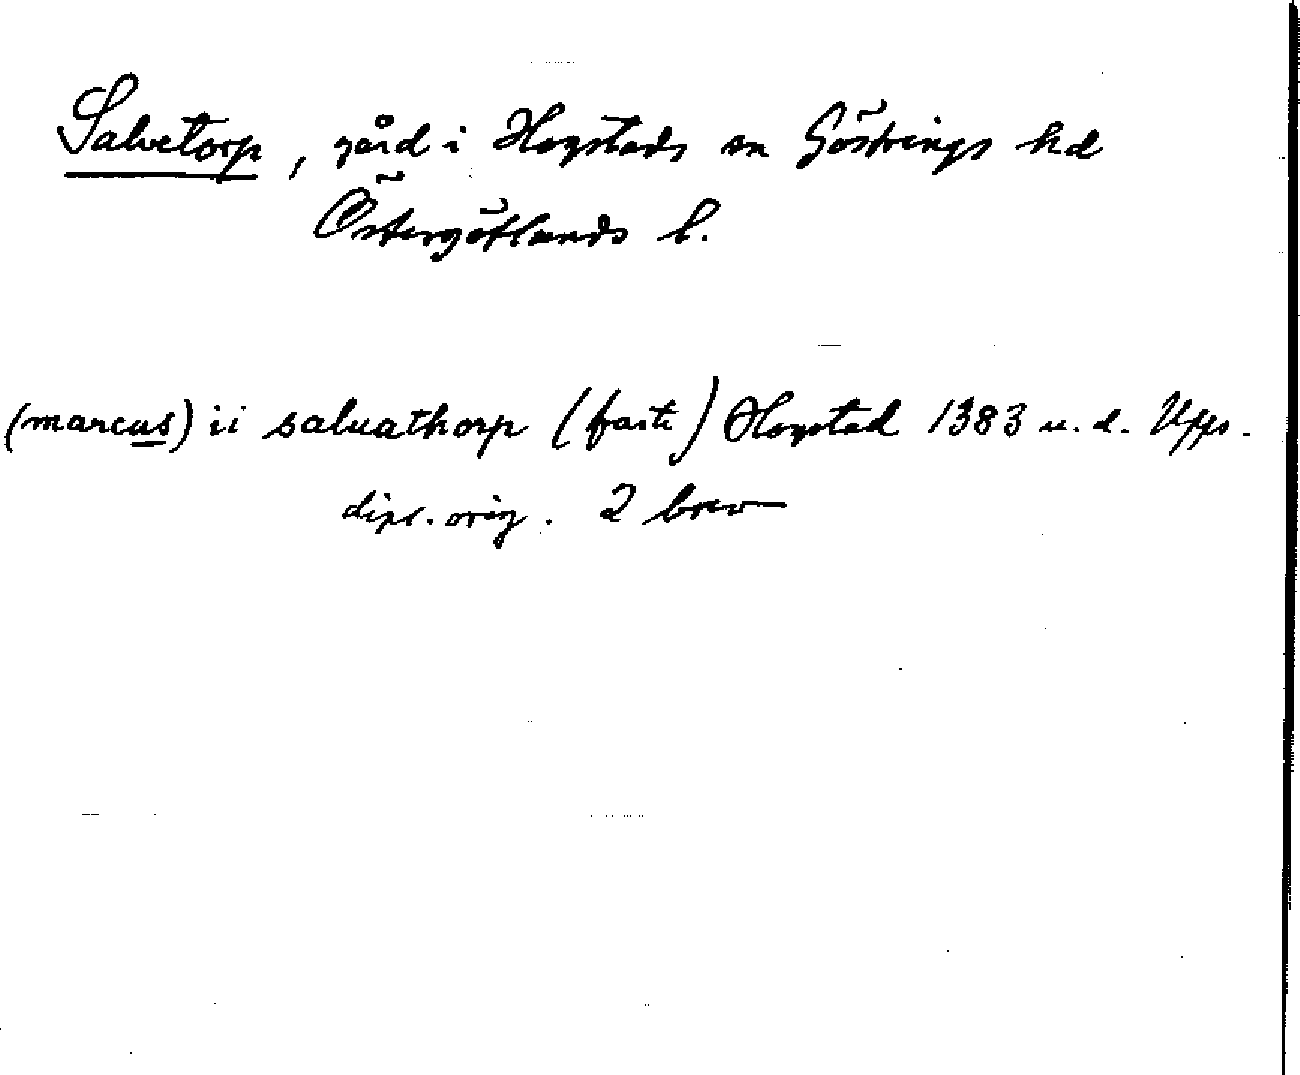 Salvetorp, gård i Hogstads sn Göstrings hd
Östergötlands l.
(marcus) ii saluathorp (faste) Hogstad 1383 u. d. Upps.
dipl. orig. 2 brev